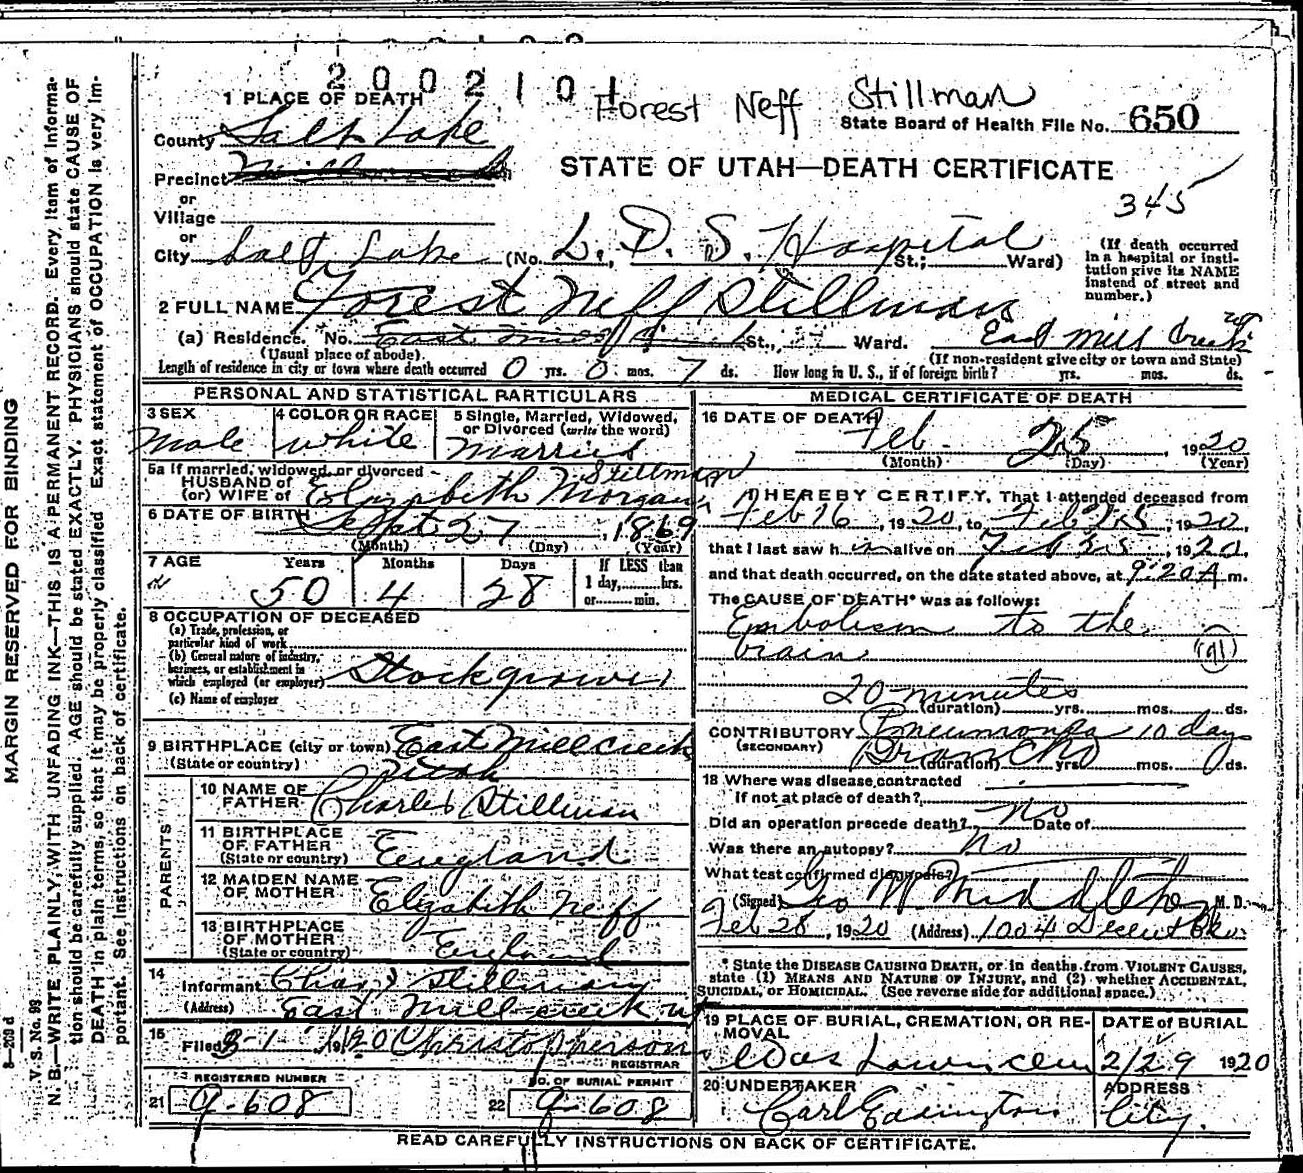 2002101
Forest Neff Stillman
1 PLACE OF DEATH
State Board of Health File No. 650
County Salt Lake
STATE OF UTAH—DEATH CERTIFICATE
Precinct
or
345
Village
or
City Salt Lake (No. L. D. S. Hospital St.; Ward)
(If death occurred in a hospital or institution give its NAME instead of street and number.)
2 FULL NAME Forest Neff Stillman
(a) Residence. No. St., Ward. East Mill Creek
(Usual place of abode) (If non-resident give city or town and State)
Length of residence in city or town where death occurred 0 yrs. 0 mos. 7 ds. How long in U. S., if of foreign birth? yrs. mos. ds.
PERSONAL AND STATISTICAL PARTICULARS
3 SEX
Male
4 COLOR OR RACE
white
5 Single, Married, Widowed, or Divorced (write the word)
Married
5a If married, widowed, or divorced
HUSBAND of
(or) WIFE of Elizabeth Morgan Stillman
6 DATE OF BIRTH Sept 27, 1869
(Month) (Day) (Year)
7 AGE Years Months Days
50 4 28
If LESS than 1 day,....hrs. or....min.
8 OCCUPATION OF DECEASED
(a) Trade, profession, or particular kind of work
(b) General nature of industry, business, or establishment in which employed (or employer) Stockgrower
(c) Name of employer
9 BIRTHPLACE (city or town) East Millcreek
(State or country) Utah
PARENTS
10 NAME OF FATHER Charles Stillman
11 BIRTHPLACE OF FATHER (State or country) England
12 MAIDEN NAME OF MOTHER Elizabeth Neff
13 BIRTHPLACE OF MOTHER (State or country) England
14
Informant Chas Stillman
(Address) East Mill creek ut
15
Filed 3-1- 1920 Christopherson
REGISTRAR
REGISTERED NUMBER
21 9-608
NO. OF BURIAL PERMIT
22 9-608
MEDICAL CERTIFICATE OF DEATH
16 DATE OF DEATH
Feb. 25, 1920
(Month) (Day) (Year)
I HEREBY CERTIFY, That I attended deceased from
Feb 16, 1920, to Feb 25, 1920,
that I last saw him alive on Feb 25, 1920,
and that death occurred, on the date stated above, at 9:20 A m.
The CAUSE OF DEATH* was as follows:
Embolism to the
brain (91)
20 minutes
(duration) yrs. mos. ds.
CONTRIBUTORY Pneumonia 10 days
(SECONDARY) Broncho
(duration) yrs. mos. ds.
18 Where was disease contracted
If not at place of death?
Did an operation precede death? No Date of
Was there an autopsy? No
What test confirmed diagnosis?
(Signed) Geo W Middleton M. D.
Feb 28, 1920 (Address) 1004 Deseret Bk.
* State the DISEASE CAUSING DEATH, or in deaths from VIOLENT CAUSES, state (1) MEANS AND NATURE OF INJURY, and (2) whether ACCIDENTAL, SUICIDAL, or HOMICIDAL. (See reverse side for additional space.)
19 PLACE OF BURIAL, CREMATION, OR REMOVAL
DATE of BURIAL
2/29 1920
20 UNDERTAKER
ADDRESS
City.
READ CAREFULLY INSTRUCTIONS ON BACK OF CERTIFICATE.
MARGIN RESERVED FOR BINDING
V. S. No. 99
N. B.—WRITE PLAINLY, WITH UNFADING INK—THIS IS A PERMANENT RECORD. Every item of information should be carefully supplied. AGE should be stated EXACTLY. PHYSICIANS should state CAUSE OF DEATH in plain terms, so that it may be properly classified. Exact statement of OCCUPATION is very important. See instructions on back of certificate.